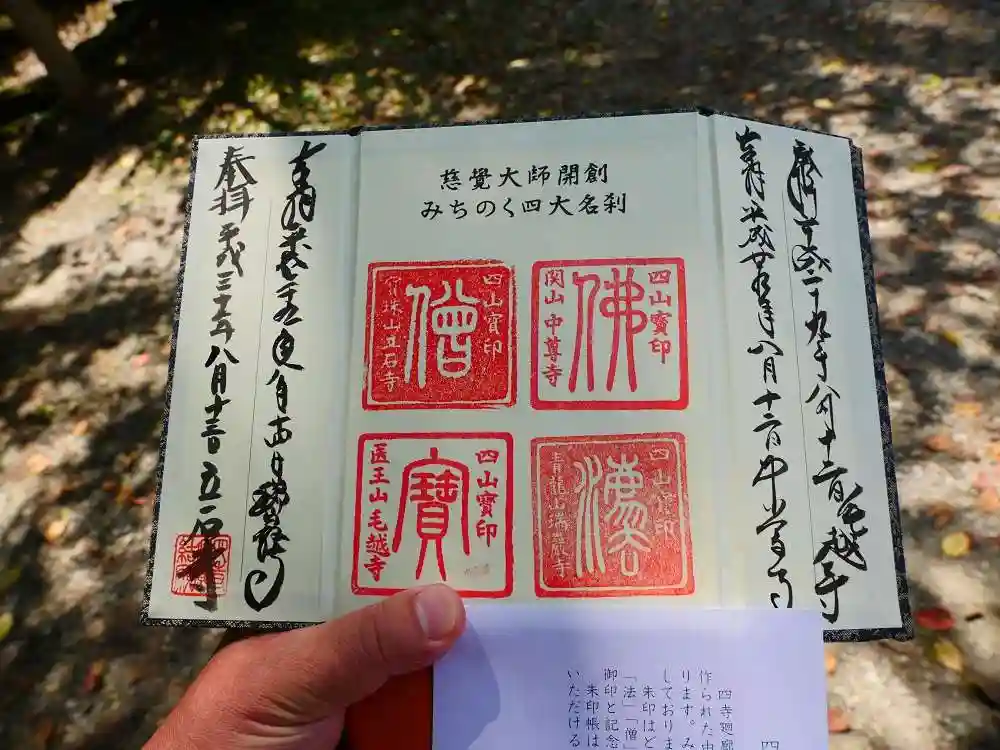 慈覺大師開創
みちのく四大名刹
四山寶印
佛
関山中尊寺
四山寶印
僧
宝珠山立石寺
四山寶印
寶
医王山毛越寺
四山寶印
青龍山瑞巌寺
八月十二日毛越寺
奉拝 平成廿九年八月十二日中尊寺
奉拝
奉拝 平成二十九年八月十三日 立石寺
四
四寺廻廊
作られた
ります。み
しておりま
朱印はど
「法」「僧」
御印と記念
朱印帳は
いただける